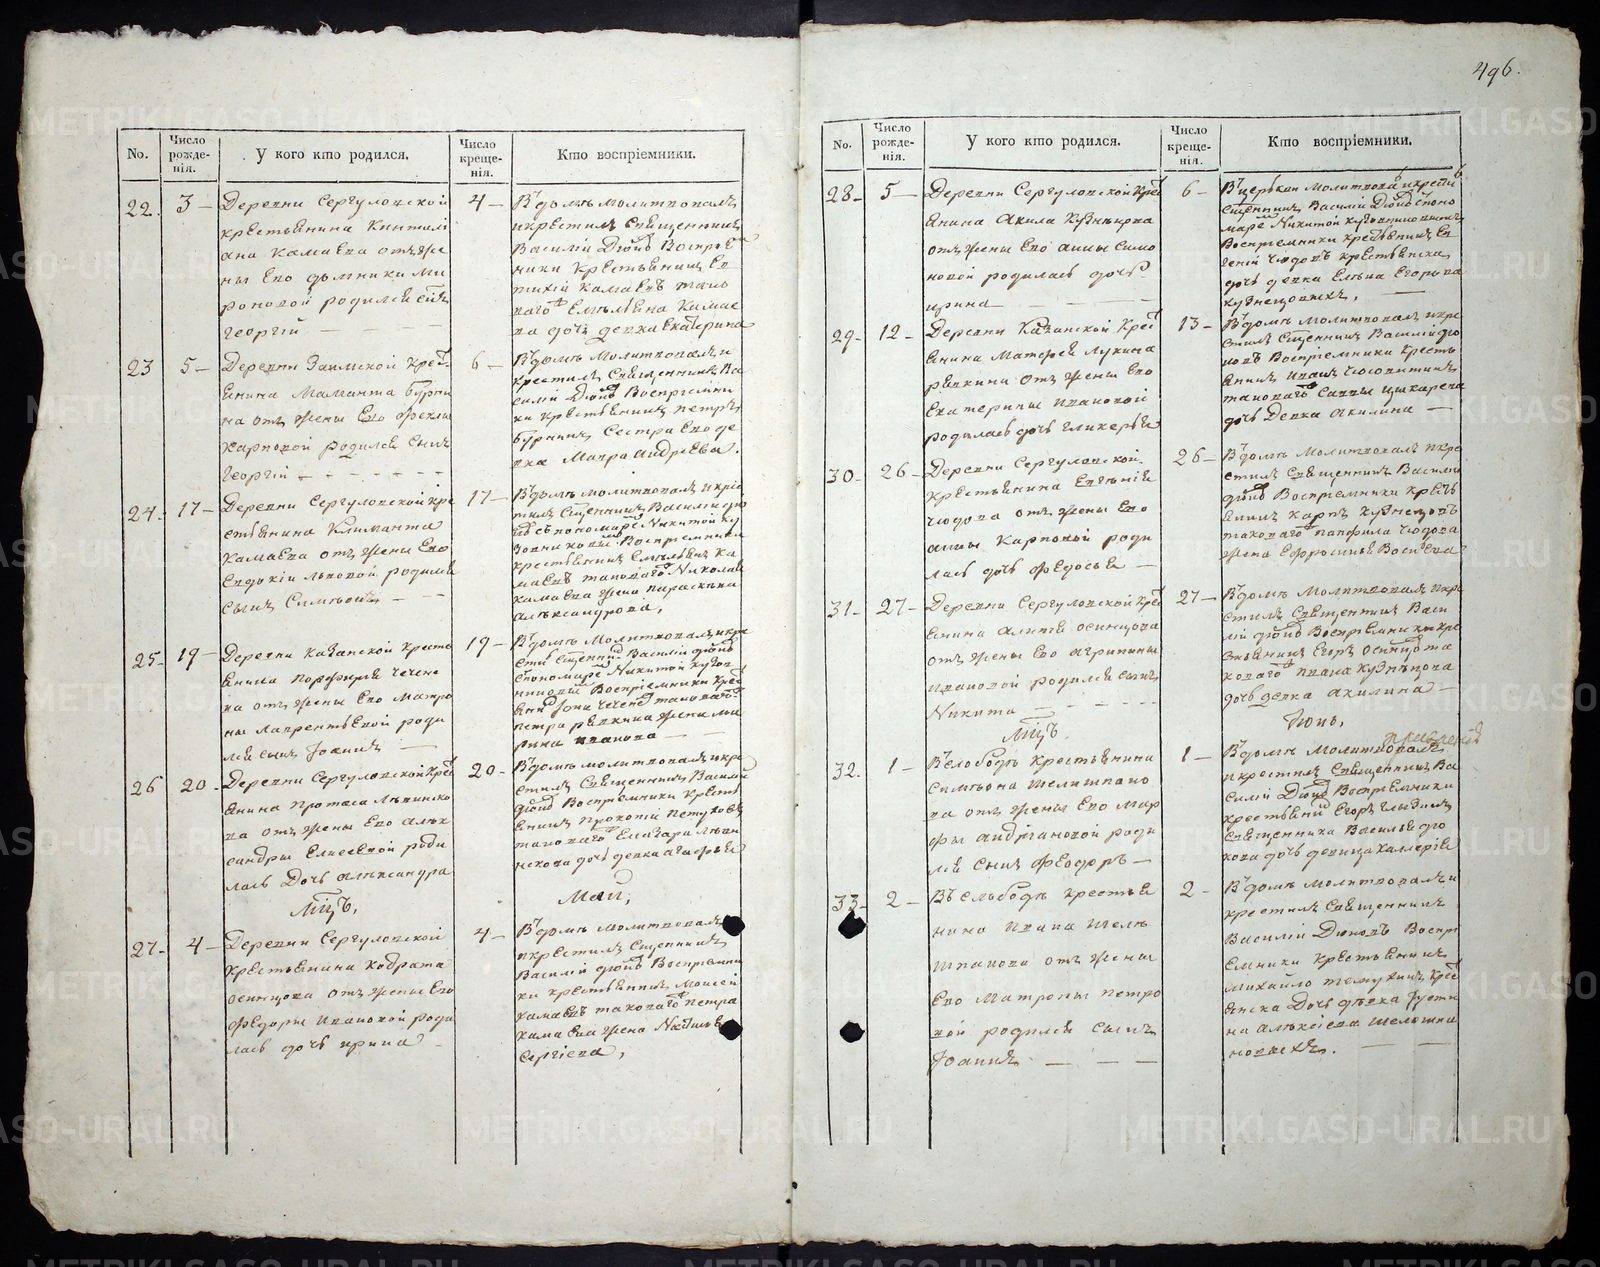 496.
No.
Число рожденія.
У кого кто родился.
Число крещенія.
Кто воспріемники.
22.
3 —
Деревни Сергуловской
крестьянина
ана Камаева отъ же
ны Его домники Ми
роновой родился сынъ
Георгій — — —
4 —
Въ домѣ Молитвовалъ
икрестилъ Священникъ
Василій Воспріем
ники Крестьянинъ Ев
тихій Камаевъ тако
ваго Емельяна Камае
ва дочь девка Екатерина
23
5 —
Деревни Заимской Крес
янина Маманта Бурни
на отъ жены Его Феклы
Карповой родился сынъ
Георгій — — — —
6 —
Въ домѣ Молитвовалъ и
крестилъ Священникъ Ва
силій Воспріемни
ки Крестьянинъ петръ
бурнинъ Сестра Его де
вка Мавра Андреева.
24.
17 —
Деревни Сергуловской кре
стьянина Климанта
Камаева отъ жены Его
Евдокіи Львовой родился
сынъ Симеонъ — —
17 —
Въ домѣ молитвовалъ икре
стилъ Священникъ Василій
съ пономаремъ Никитой
Воспріемники
крестьянинъ Емельянъ Ка
маевъ таковаго Николая
Камаева жена параскева
алѣксандрова,
25.
19 —
Деревни Казанской Кресть
янина Порфирія Чечене
ва отъ жены Его Матро
ны Лаврентьевой роди
лся сынъ Іоаннъ —
19 —
Въ домѣ Молитвовалъ икре
Василій
Никитой
Воспріемники Крес
петра рѣвкина жена Ма
рина иванова — —
26
20 -
Деревни Сергуловской Крес
янина Протаса Лѣвинско
ва отъ жены Его алѣк
сандры Елисеевой роди
лась Дочь алѣксандра
20 —
Въ домѣ молитвовалъ икре
стилъ Священникъ Василій
Воспріемники Кресть
янинъ прокопій петуховъ
таковаго Елизара Лѣви
нскова дочь девка агафья
Мцъ,
Май,
27 -
4 —
Деревни Сергуловской
Крестьянина Кодрата
осинцова отъ жены Его
Федоры Ивановой роди
лась дочь ирина —
4 —
Въ домѣ молитвовалъ
икрестилъ Священникъ
Василій Воспріемни
ки крестьянинъ Моисей
Камаевъ таковаго петра
Камаева жена
Сергіева,
No.
Число рожденія.
У кого кто родился.
Число крещенія.
Кто воспріемники.
28 -
5 —
Деревни Сергуловской Крес
янина Акила Кузнецова
отъ жены Его анны Симо
новой родилась дочь
ирина — — —
6 —
Въ церкви молитвовалъ икрести
Священникъ Василій
Никитой
Воспріемники Крестьянинъ Ев
геній Чюдовъ Крестьянска
дочь девка Елена Егорова
кузнецовыхъ, —
29 -
12 —
Деревни Казанской Крес
янина Матфея Лукина
рѣвкина отъ жены Его
Екатерины Ивановой
родилась дочь гликерья
13 —
Въ домѣ Молитвовалъ икре
стилъ Священникъ Василій дю
ковъ Воспріемники Кресть
янинъ Иванъ
таковаго Саввы
дочь Девка Акилина —
30 -
26 —
Деревни Сергуловской
Крестьянина Евгенія
Чюдова отъ жены Его
анны Карповой роди
лась дочь Федосья —
26 —
Въ домѣ Молитвовалъ икре
стилъ Священникъ Василій
Воспріемники Кресть
янинъ Карпъ Кузнецовъ
таковаго панфила Чюдова
жена Ефросинья Васильева
31 -
27 —
Деревни Сергуловской Крес
янина осинцова
отъ жены Его агрипины
Ивановой родился сынъ
Никита — — —
27 —
Въ домѣ Молитвовалъ икре
стилъ Священникъ Васи
лій Воспріемники Кре
стьянинъ Егоръ Осинцо та
коваго Ивана Кузнецова
дочь девка акилина —
Мцъ.
Іюнь,
32.
1 —
Въ слободѣ Крестьянина
Симеона Шелешпано
ва отъ жены Его Мар
фы андріановой роди
лся сынъ Феодоръ —
1 —
Въ домѣ Молитвовалъ
икрестилъ Священникъ Ва
силій Воспріемники
крестьянинъ Егоръ
Священника Василья дю
кова дочь девица Валлерія
33 -
2 —
Въ слободѣ Крестья
нина Ивана Шеле
шпанова отъ жены
Его Матроны петро
вой родился сынъ
Іоаннъ — — —
2 —
Въ домѣ молитвовалъ и
крестилъ Священникъ
Василій Дюковъ Воспрі
емники Крестьянинъ
Михайло Крес
янска Дочь дѣвка Усти
на алѣксѣева Шелешпа
новыхъ. — —
METRIKI.GASO-URAL.RU